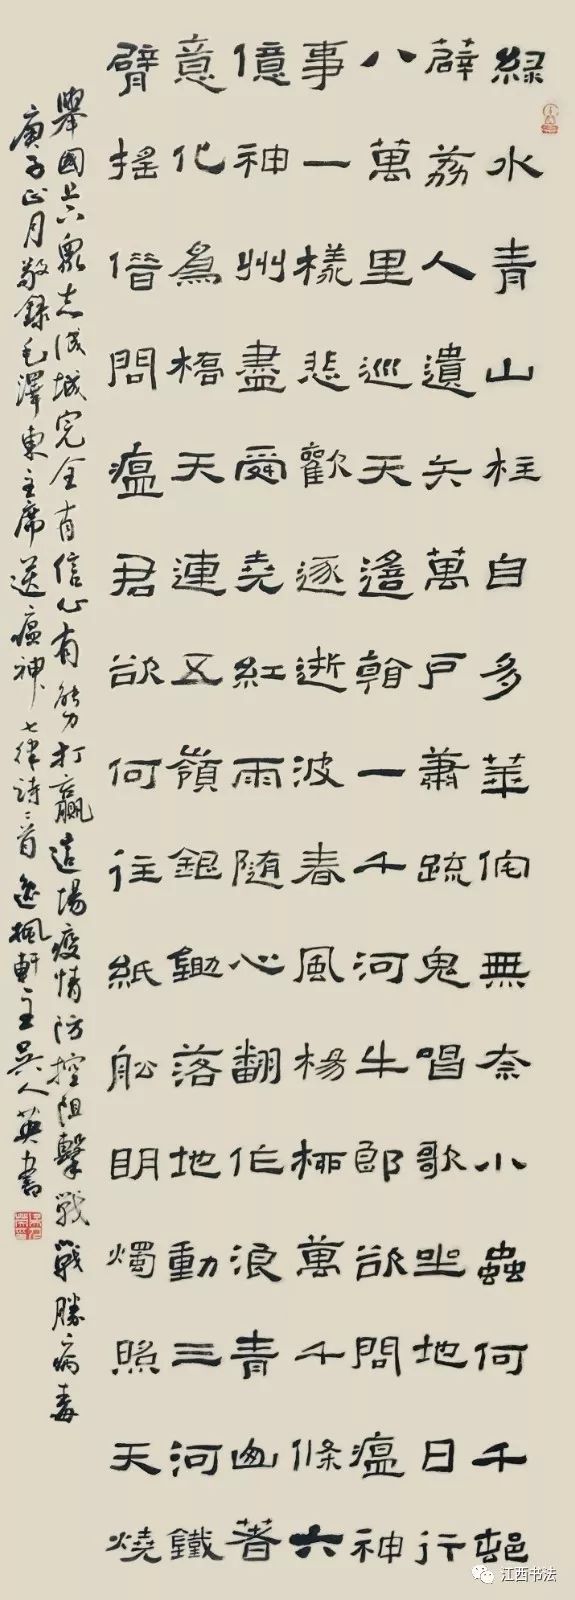 綠水青山枉自多華佗無奈小蟲何千邨
薜荔人遺矢萬戶蕭疏鬼唱歌坐地日行
八萬里巡天遙看一千河牛郎欲問瘟神
事一樣悲歡逐逝波春風楊柳萬千條六
億神州盡舜堯紅雨隨心翻作浪青山著
意化為橋天連五嶺銀鋤落地動三河鐵
臂搖借問瘟君欲何往紙船明燭照天燒
舉國上下眾志成城完全有信心有能力打贏這場疫情防控阻擊戰戰勝病毒
庚子正月敬錄毛澤東主席送瘟神七律詩二首逸楓軒主吳人英書
江西书法